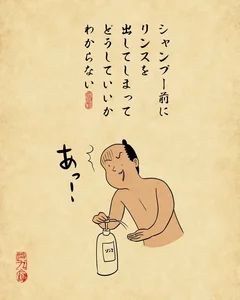 シャンプー前に
リンスを
出してしまって
どうしていいか
わからない
あっ…
リンス